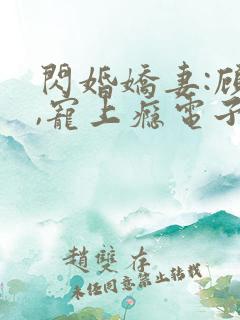 閃婚嬌妻:顧
,寵上癮電子
趙雙存
未任同意禁止轉載